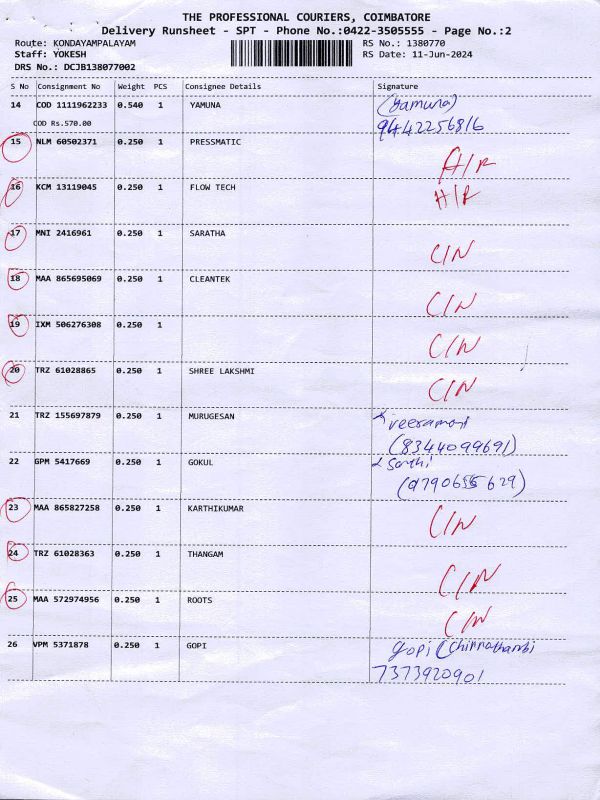 THE PROFESSIONAL COURIERS, COIMBATORE
Delivery Runsheet - SPT - Phone No.:0422-3505555 - Page No.:2
Route: KONDAYAMPALAYAM RS No.: 1380770
Staff: YOKESH RS Date: 11-Jun-2024
DRS No.: DCJB138077002
S No Consignment No Weight PCS Consignee Details Signature
14 COD 1111962233 0.540 1 YAMUNA (Yamuna)
COD Rs.570.00 9442256816
15 NLM 60502371 0.250 1 PRESSMATIC
16 KCM 13119045 0.250 1 FLOW TECH
17 MNI 2416961 0.250 1 SARATHA C/N
18 MAA 865695069 0.250 1 CLEANTEK C/N
19 IXM 506276308 0.250 1 C/N
20 TRZ 61028865 0.250 1 SHREE LAKSHMI C/N
21 TRZ 155697879 0.250 1 MURUGESAN veeramani
(8344099691)
22 GPM 5417669 0.250 1 GOKUL
23 MAA 865827258 0.250 1 KARTHIKUMAR C/N
24 TRZ 61028363 0.250 1 THANGAM C/N
25 MAA 572974956 0.250 1 ROOTS C/N
26 VPM 5371878 0.250 1 GOPI gopi (chinnathambi
7373920901